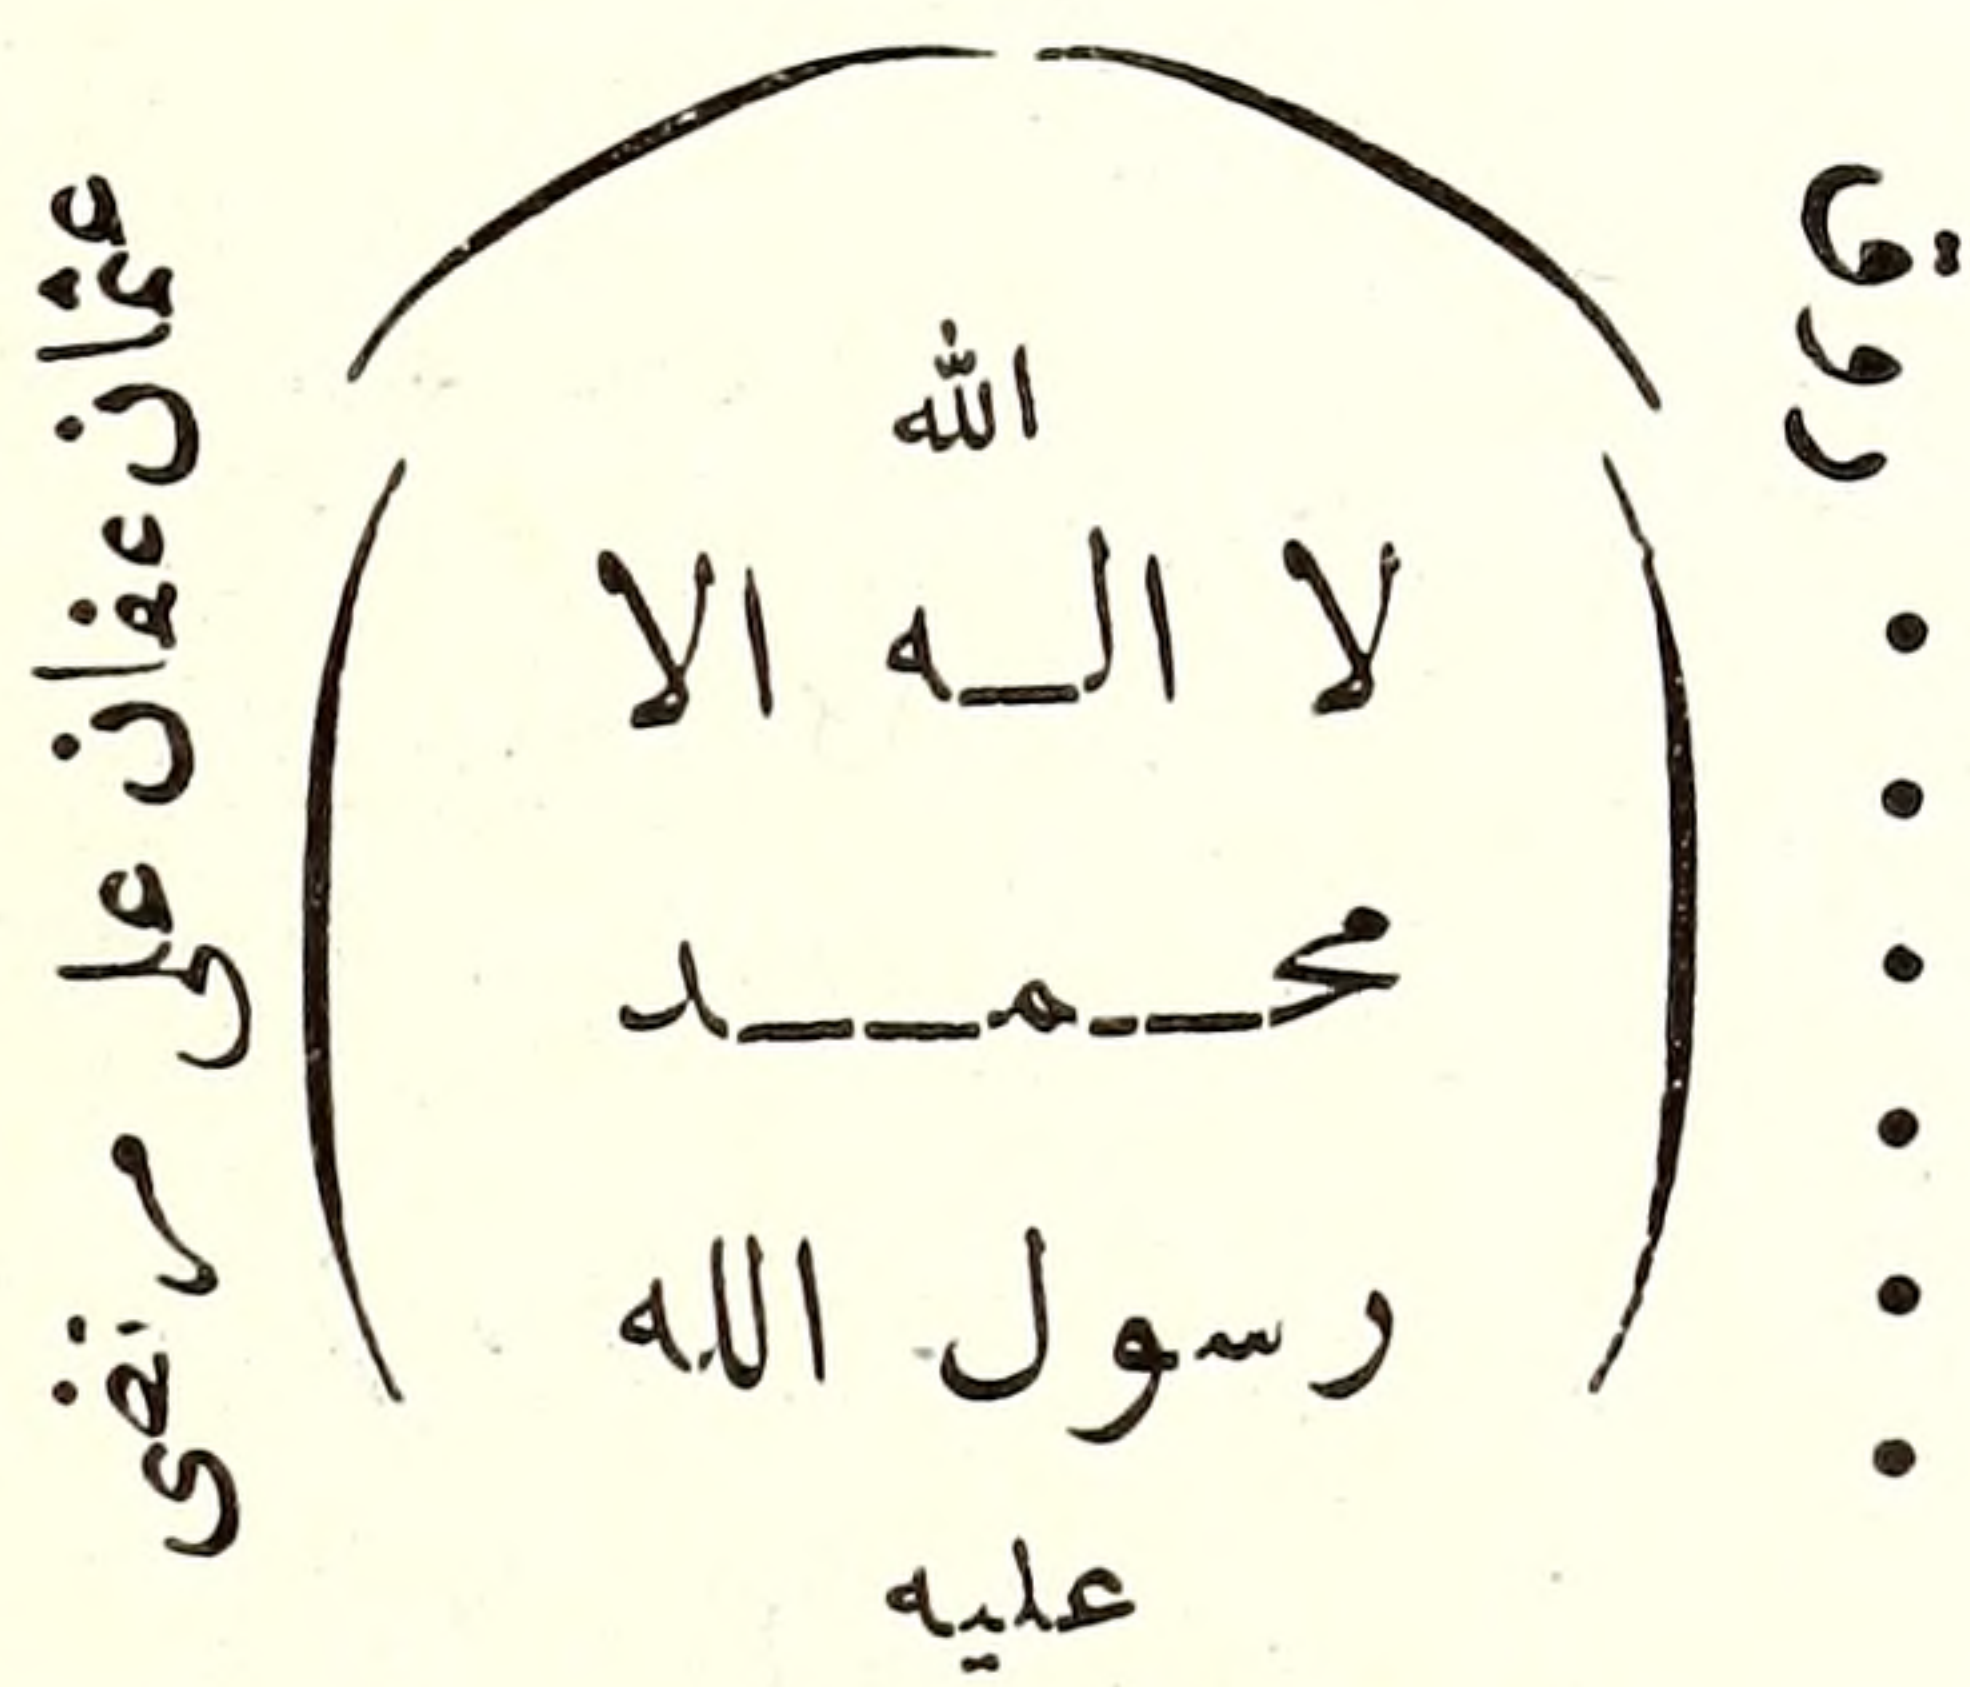 الله
لا اله الا
محمد
رسول الله
عليه
عثمان عفان على مرتضى
روق